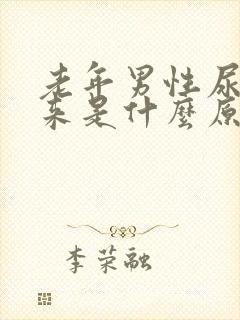 老年男性尿
来是什麼原
李荣融